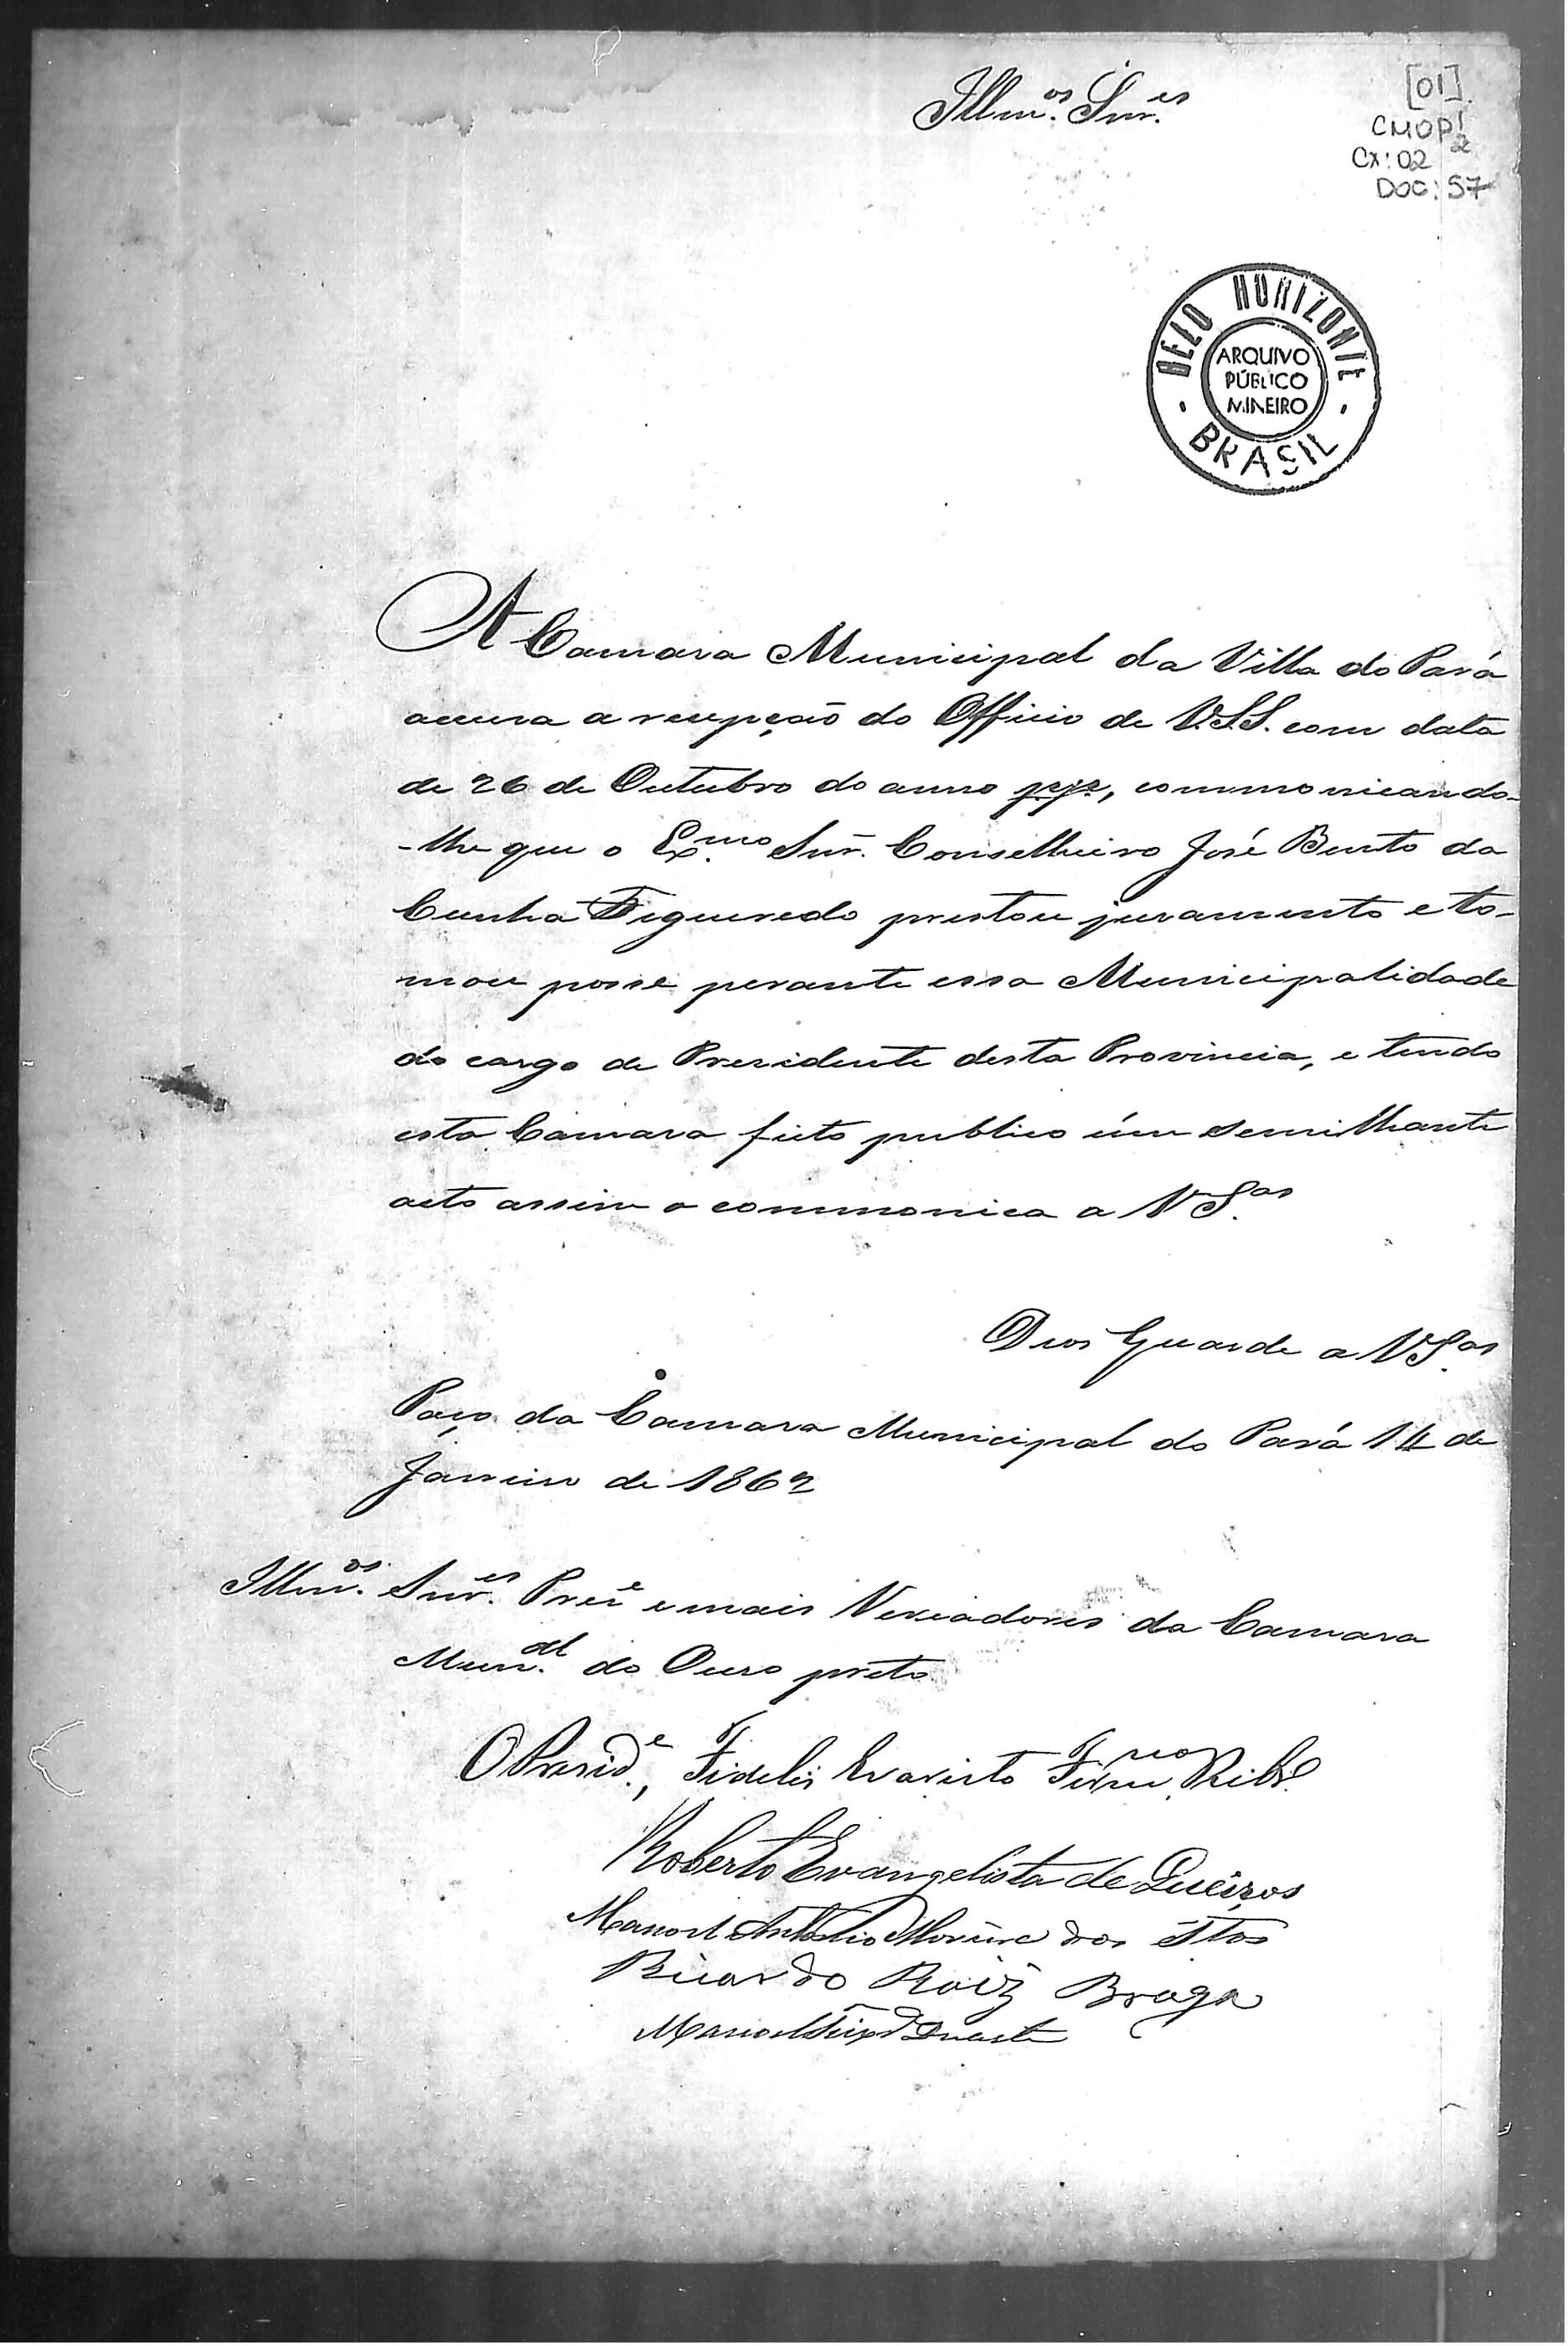 Illm.os Snr.es
[01]
CMOP! 2
CX: 02
DOC: 57
BELO HORIZONTE
ARQUIVO
PÚBLICO
MINEIRO
BRASIL
A Camara Municipal da Villa do Pará
accusa a recepção do Officio de V.S.S. com data
de 26 de Outubro do anno pp., communicando-
-lhe que o Ex.mo Snr. Conselheiro José Bento da
Cunha Figueredo prestou juramento e to-
mou posse perante essa Municipalidade
do cargo de Prezidente desta Provincia, e tendo
esta Camara feito publico úm semilhante
acto assim o communica a VS.as
Deos Guarde a VS.as
Paço da Camara Municipal do Pará 14 de
Janeiro de 1862
Illm.os Snr.es Prez.e e mais Vereadores da Camara
Mun.al do Ouro preto
O Presid.e, Fidelis Evaristo Ribr.º
Roberto Evangelista de Queiros
Manoel Antonio Moreira dos Stos
Ricardo Roiz Braga
Manoel Duarte